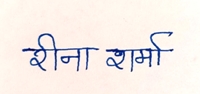 रीना शर्मा